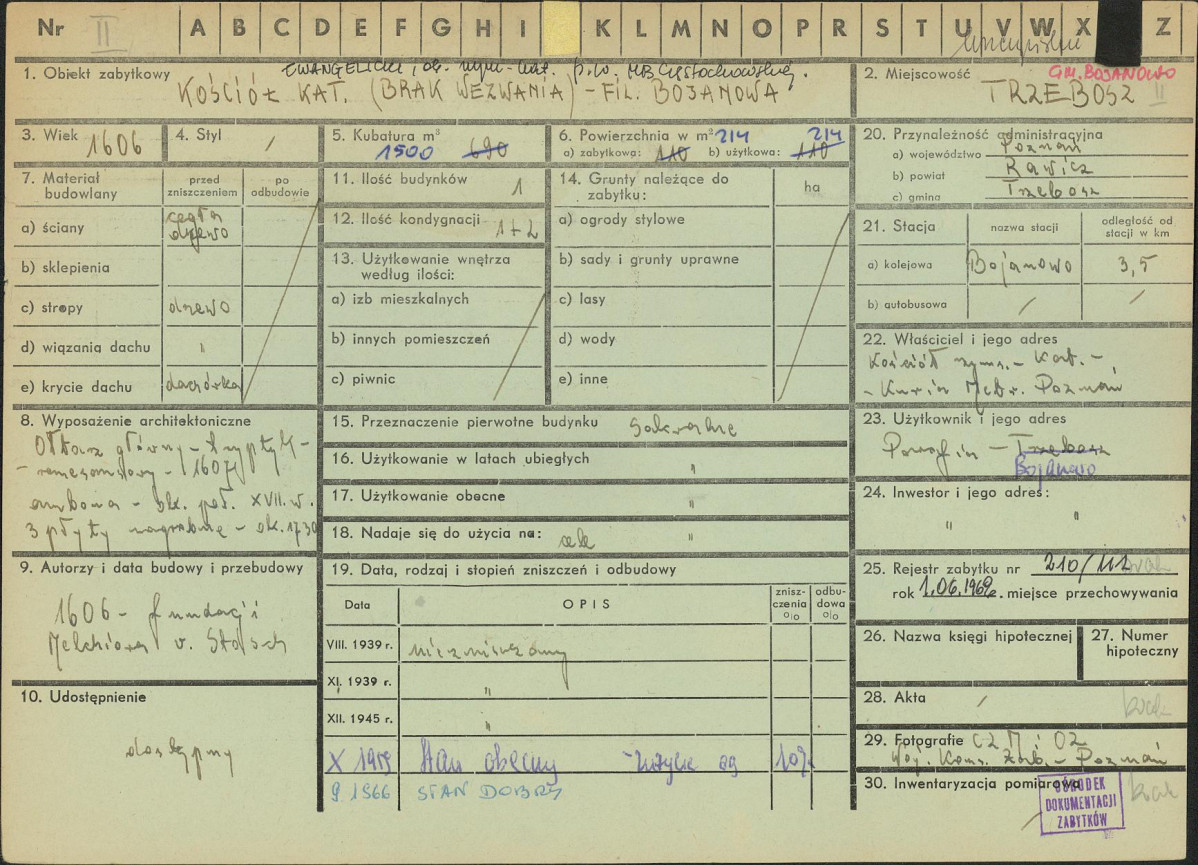 Nr II A B C D E F G H I K L M N O P R S T U V W X Z
1. Obiekt zabytkowy
EWANGELICKI, ob. rzym-kat. p.w. MB Częstochowskiej.
KOŚCIÓŁ KAT. (BRAK WEZWANIA) - FIL. BOJANOWA
2. Miejscowość
GM. BOJANOWO
TRZEBOSZ II
3. Wiek 1606
4. Styl /
5. Kubatura m³
1500 690
6. Powierzchnia w m² 214 214
a) zabytkowa: 110 b) użytkowa: 110
20. Przynależność administracyjna
a) województwo Poznań
b) powiat Rawicz
c) gmina Trzebosz
7. Materiał budowlany
przed zniszczeniem
po odbudowie
a) ściany cegła drzewo
b) sklepienia
c) stropy drzewo
d) wiązania dachu "
e) krycie dachu dachówka
11. Ilość budynków 1
12. Ilość kondygnacji 1+2
13. Użytkowanie wnętrza
według ilości:
a) izb mieszkalnych
b) innych pomieszczeń
c) piwnic
14. Grunty należące do
zabytku: ha
a) ogrody stylowe
b) sady i grunty uprawne
c) lasy
d) wody
e) inne
21. Stacja
nazwa stacji
odległość od
stacji w km
a) kolejowa Bojanowo 3,5
b) autobusowa / /
22. Właściciel i jego adres
Kościół rzym. - Kat. -
- Kuria Metr. Poznań
8. Wyposażenie architektoniczne
Ołtarz główny - tryptyk -
- renesansowy - 1607 r.
ambona - 2 poł. XVII. w.
3 płyty nagrobne - ok. 1730
15. Przeznaczenie pierwotne budynku Sakralne
16. Użytkowanie w latach ubiegłych "
17. Użytkowanie obecne "
18. Nadaje się do użycia na: cele "
23. Użytkownik i jego adres
Parafia - Trzebosz
Bojanowo
24. Inwestor i jego adres:
" "
9. Autorzy i data budowy i przebudowy
1606 - fundacji
Melchiora v. Stosch
19. Data, rodzaj i stopień zniszczeń i odbudowy
Data
OPIS
znisz-
czenia
%
odbu-
dowa
%
VIII. 1939 r. niezniszczony
XI. 1939 r. "
XII. 1945 r. "
X 1959 Stan obecny - zużycie og 10%
9. 1966 STAN DOBRY
25. Rejestr zabytku nr 210/ brak
rok 1.06.1969. miejsce przechowywania
26. Nazwa księgi hipotecznej
27. Numer
hipoteczny
10. Udostępnienie
dostępny
28. Akta / brak
29. Fotografie CZ M i OZ
Woj. Kons. Zab. - Poznań
30. Inwentaryzacja pomiarowa brak
/
OŚRODEK
DOKUMENTACJI
ZABYTKÓW